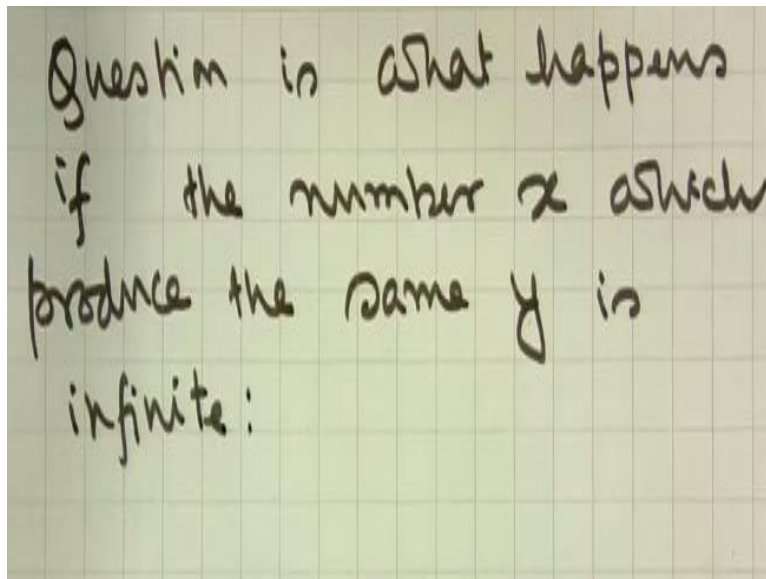 Question is what happens
if the number x which
produce the same y is
infinite: